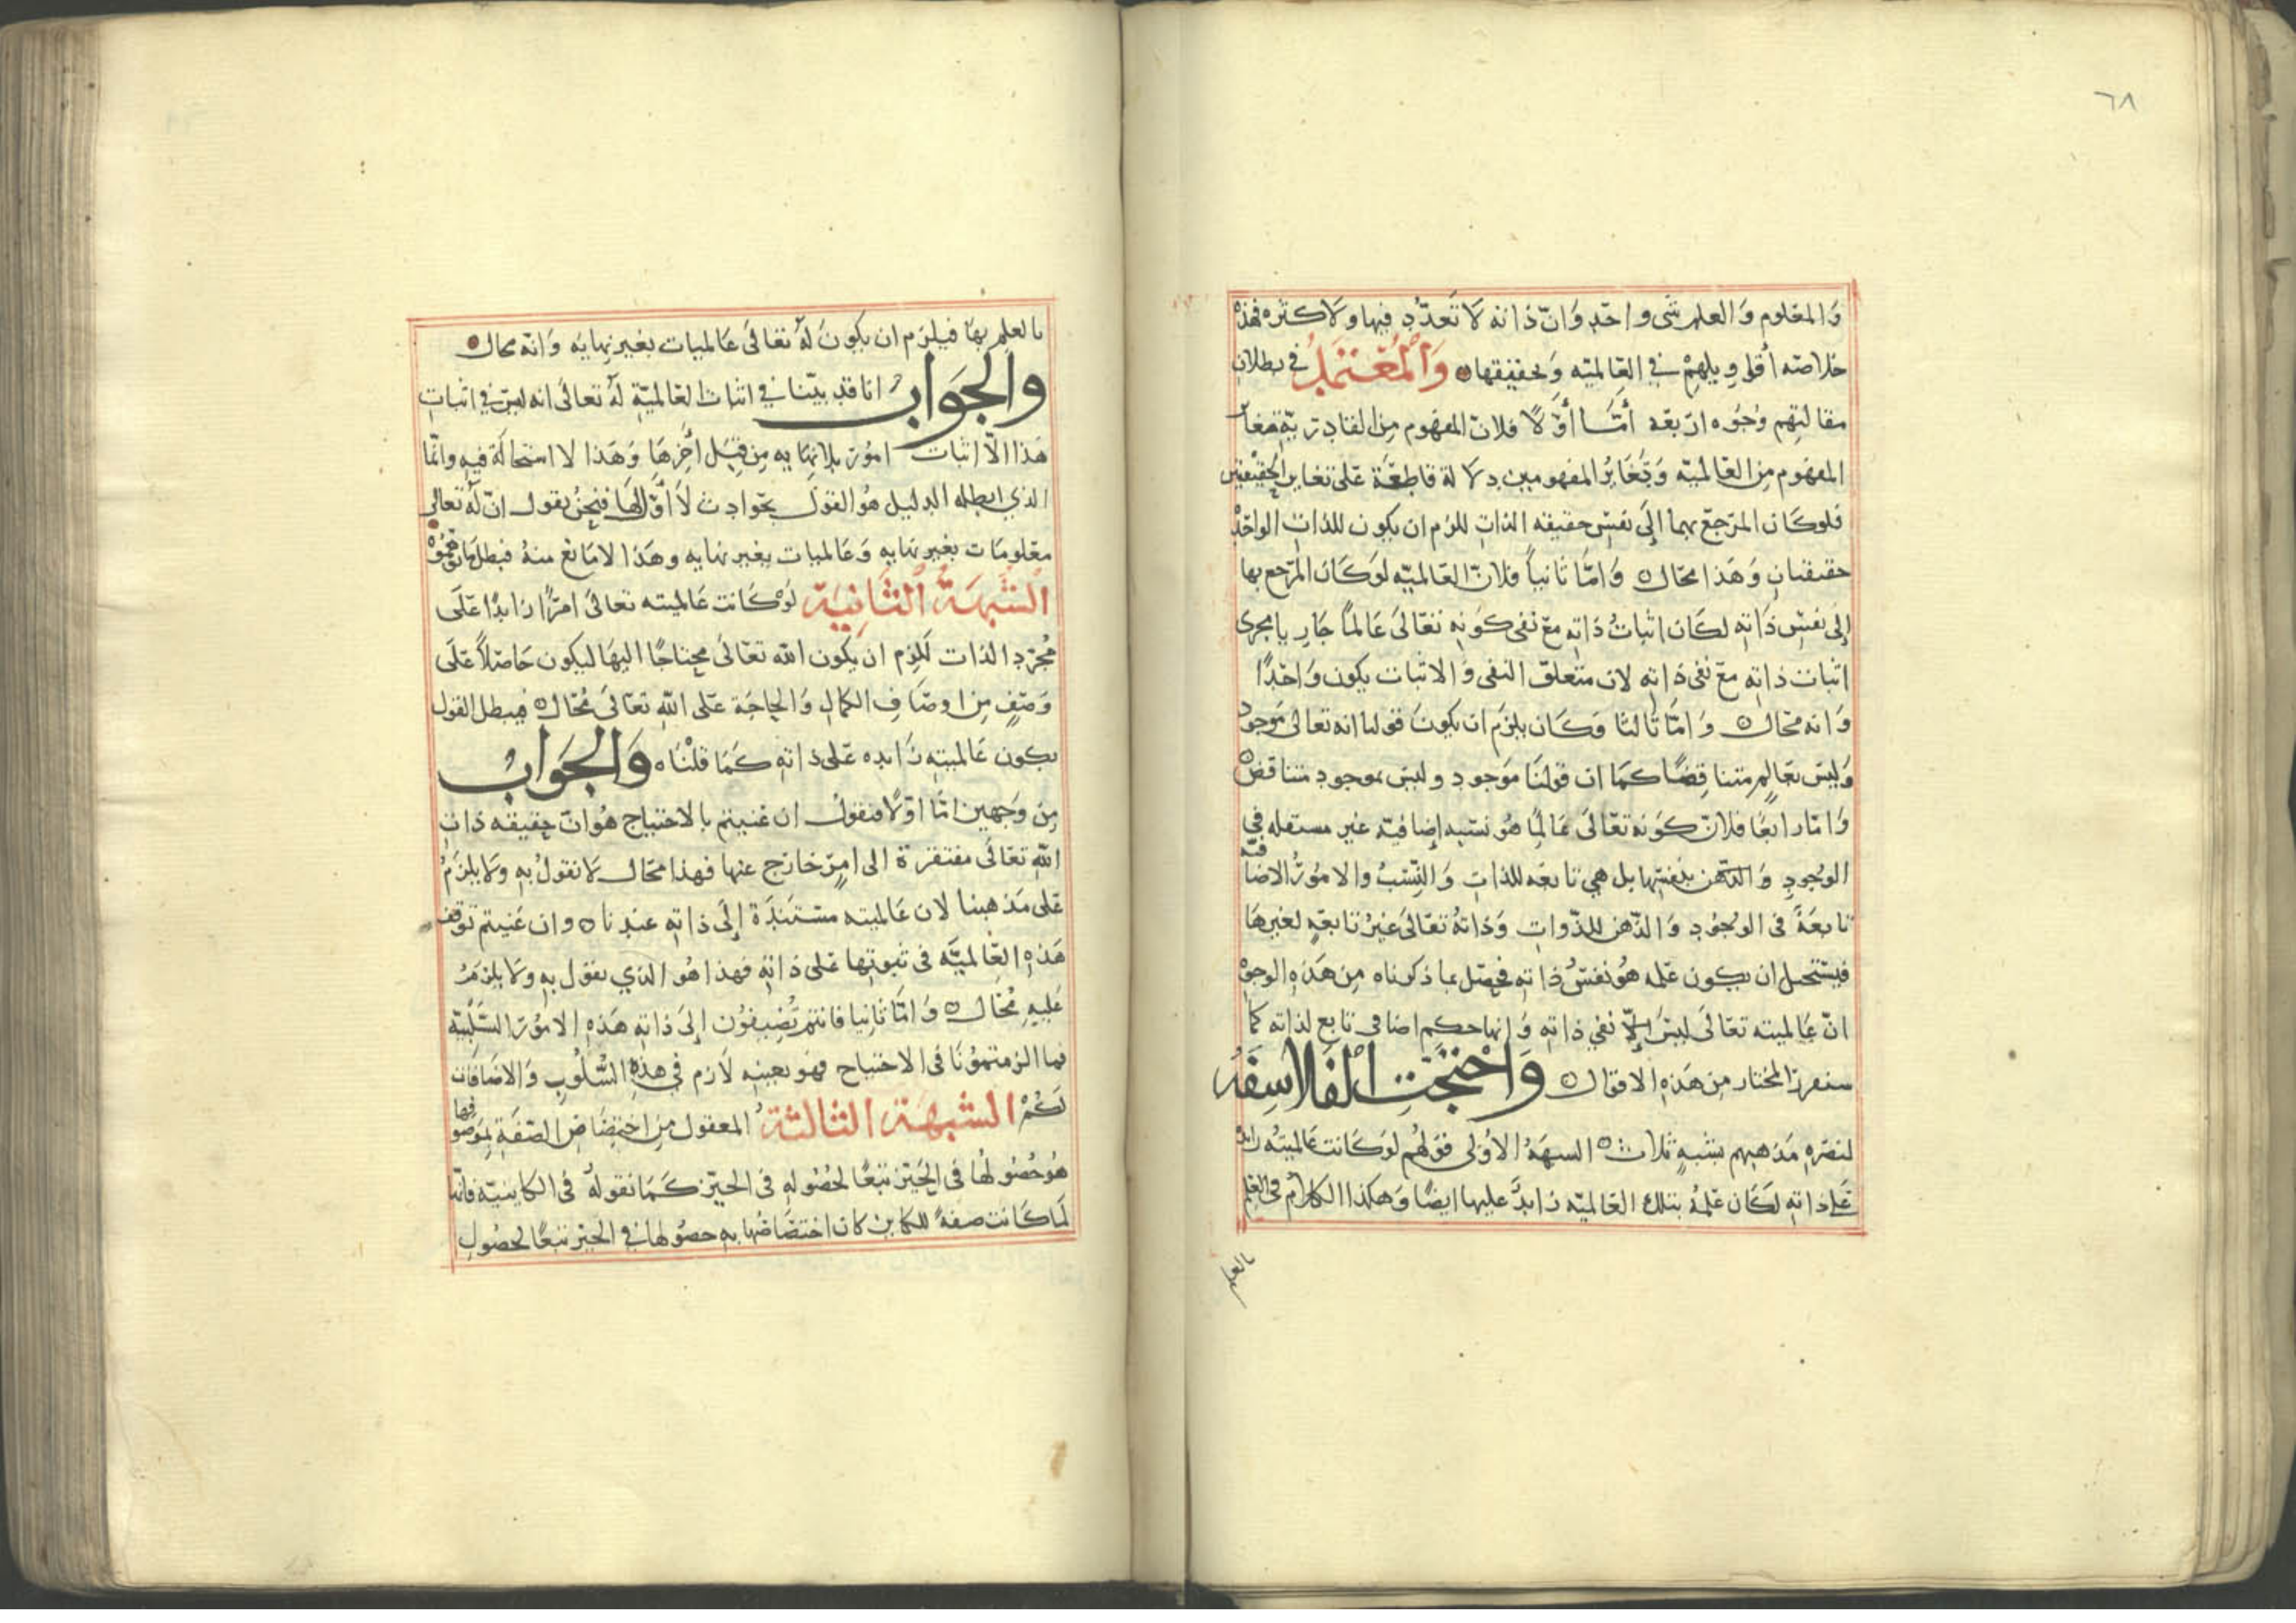 ٦٨
وَالمعَلوم وَالعلم شى واحد وَانّ ذاته لَا تَعَدُّد فيها ولَا كثره فهذه
خلاصته أقاويلهمْ في العَالميّه وَتحقيقها ۞ وَالْمُعْتَمَدُ في بطلان
مقالتهم وُجُوه اربعَه أمَّا أوّلًا فلانّ المفهوم مِن القادريّه مغاير
المفهوم مِن العَالميّه وَتَغايُر المفهومين دلَالة قاطعَة عَلى تغاير الحَقيقتين
فلوكان المرجع بهما إلَى نفسِ حقيقه الذاتِ للزم ان يكون للذاتِ الواحدْه
حقيقتانِ وَهَذا محَال ۞ وَامّا ثانيًا فلانّ العَالميّه لوكَان المرجع بها
إلى نفسِ ذَاتِهِ لكان اثباتُ ذاتِهِ مع نفى كونهِ تعَالىَ عَالمًا جَارٍ يا مجرى
اثبات ذاتِه معَ نفى ذاتِهِ لان متعلق النفى وَالاثبات يكون وَاحدًا
وَانه محَال ۞ وَامّا ثالثا فكَان يلزَم ان يكونَ قولنا انه تعالى موجود
وَليسَ بعَالمٍ متناقِضًا كمَا ان قولنا مَوجود وليسَ بموجود متناقض ۞
وَامّا رابعًا فلانّ كونه تعَالىَ عَالمًا هُو نسبه إضافيّه غير مستقله في
الوجودِ وَالذهن بنفسها بل هي تابعَه للذاتِ وَالنِسَبُ والامُورُ الاضافيّه
تابعَةً فى الوُجُودِ وَالذهن للذّواتِ وَذاتهُ تعَالىَ غيرُ تابعَهٍ لغيرهَا
فيستحيل ان يكون علمه هُو نفسُ ذاتِهِ فحصَل بما ذكرناه مِن هَذِهِ الوجوْ
انّ عَالميته تعَالىَ ليسَ إلاّ نفي ذاتِهِ وَانها حكم اضافى تابع لذاته كما
سنقرر المختار من هَذِهِ الاقوال ۞ وَاحْتَجَّتِ الْفَلاسِفَهُ
لنصْره مَذهبهم بشبهٍ ثلاث ۞ الشبهَهُ الأوُلى قولهُم لوكَانت عَالميتُه زايده
عَلى ذاتِهِ لكَان عَلمُهُ بتلك العَالميّه زايدًا عليها ايضًا وَهكذا الكلام فى العلم
بالعلم
بالعلمِ بهَا فيلزم ان يكونَ لَهُ تعَالىَ عَالميات بغير نهايه وَانه محال ۞
وَالجوَابُ انا قد بيّنا في اثبات العَالميّةِ لَهُ تعَالىَ انه ليسَ في اثباتِ
هَذا الاّ اثبات امُور بلا نهايه مِن قِبَل آخرِهَا وَهَذا لا استحالَة فيهِ وانما
الذي ابطله الدليل هُو القول بحَوادِث لَا أوّل لهَا فنحن نقول انّ لَهُ تعالى
معَلومَات بغير نهايهٍ وَعَالميات بغير نهايه وهَذا لا مَانع منهُ فبطل مَا توهموه ۞
الشبهَةُ الثانِيَة لَوْ كَانت عَالميته تعَالىَ امرًا زايدًا عَلَى
مُجَرّدِ الذات لَلَزِم ان يكون الله تعَالىَ محتاجًا اليها ليكون حَاصِلاً عَلَى
وَصفٍ مِن اوصَافِ الكمالِ وَالحاجَة عَلى اللهِ تعَالىَ مُحَال ۞ فيبطل القول
بكون عَالميتِه زايده عَلى ذاتِهِ كمَا قلْنَا ۞ وَالجَوَابُ
مِن وَجهين امّا اوّلًا فنقول ان عَنيتم بالاحتياج هُو انّ حقيقه ذاتِ
اللهِ تعَالى مفتقرة الى امرٍ خارَج عنها فهذا محَال لَا نقولُ بِهِ ولَا يلزَمُ
عَلى مَذهبنا لان عَالميته مستندَة إلَى ذاتِهِ عندنا ۞ وان عَنيتم توقف
هَذِهِ العَالميّه فى ثبوتها عَلى ذاتِهِ فهذا هُو الذي نقول بهِ ولَا يلزمُ
عَليهِ مُحَال ۞ وَامّا ثانيا فانتم تُضيفُون إلَى ذاتِهِ هَذِهِ الامُور السَّلبيّه
فما الزمتمُونَا فى الاحتياج فهُو بعَينهِ لَازم في هَذِهِ السُّلُوبِ وَالاضَافات
لَكُمْ الشبهَة الثالثَة المعقول مِن اختِصَاصِ الصّفَةِ بموصُوفها
هُو حُصُولهَا فى الحَيّز تبعًا لحُصُولهِ فى الحَيّز كَمَا نقولهُ فى الكاينيّه فانها
لمَا كَانت صفةً للكاين كان اختصَاصُها بهِ حصُولها في الحَيّز تبعًا لحصُولِ